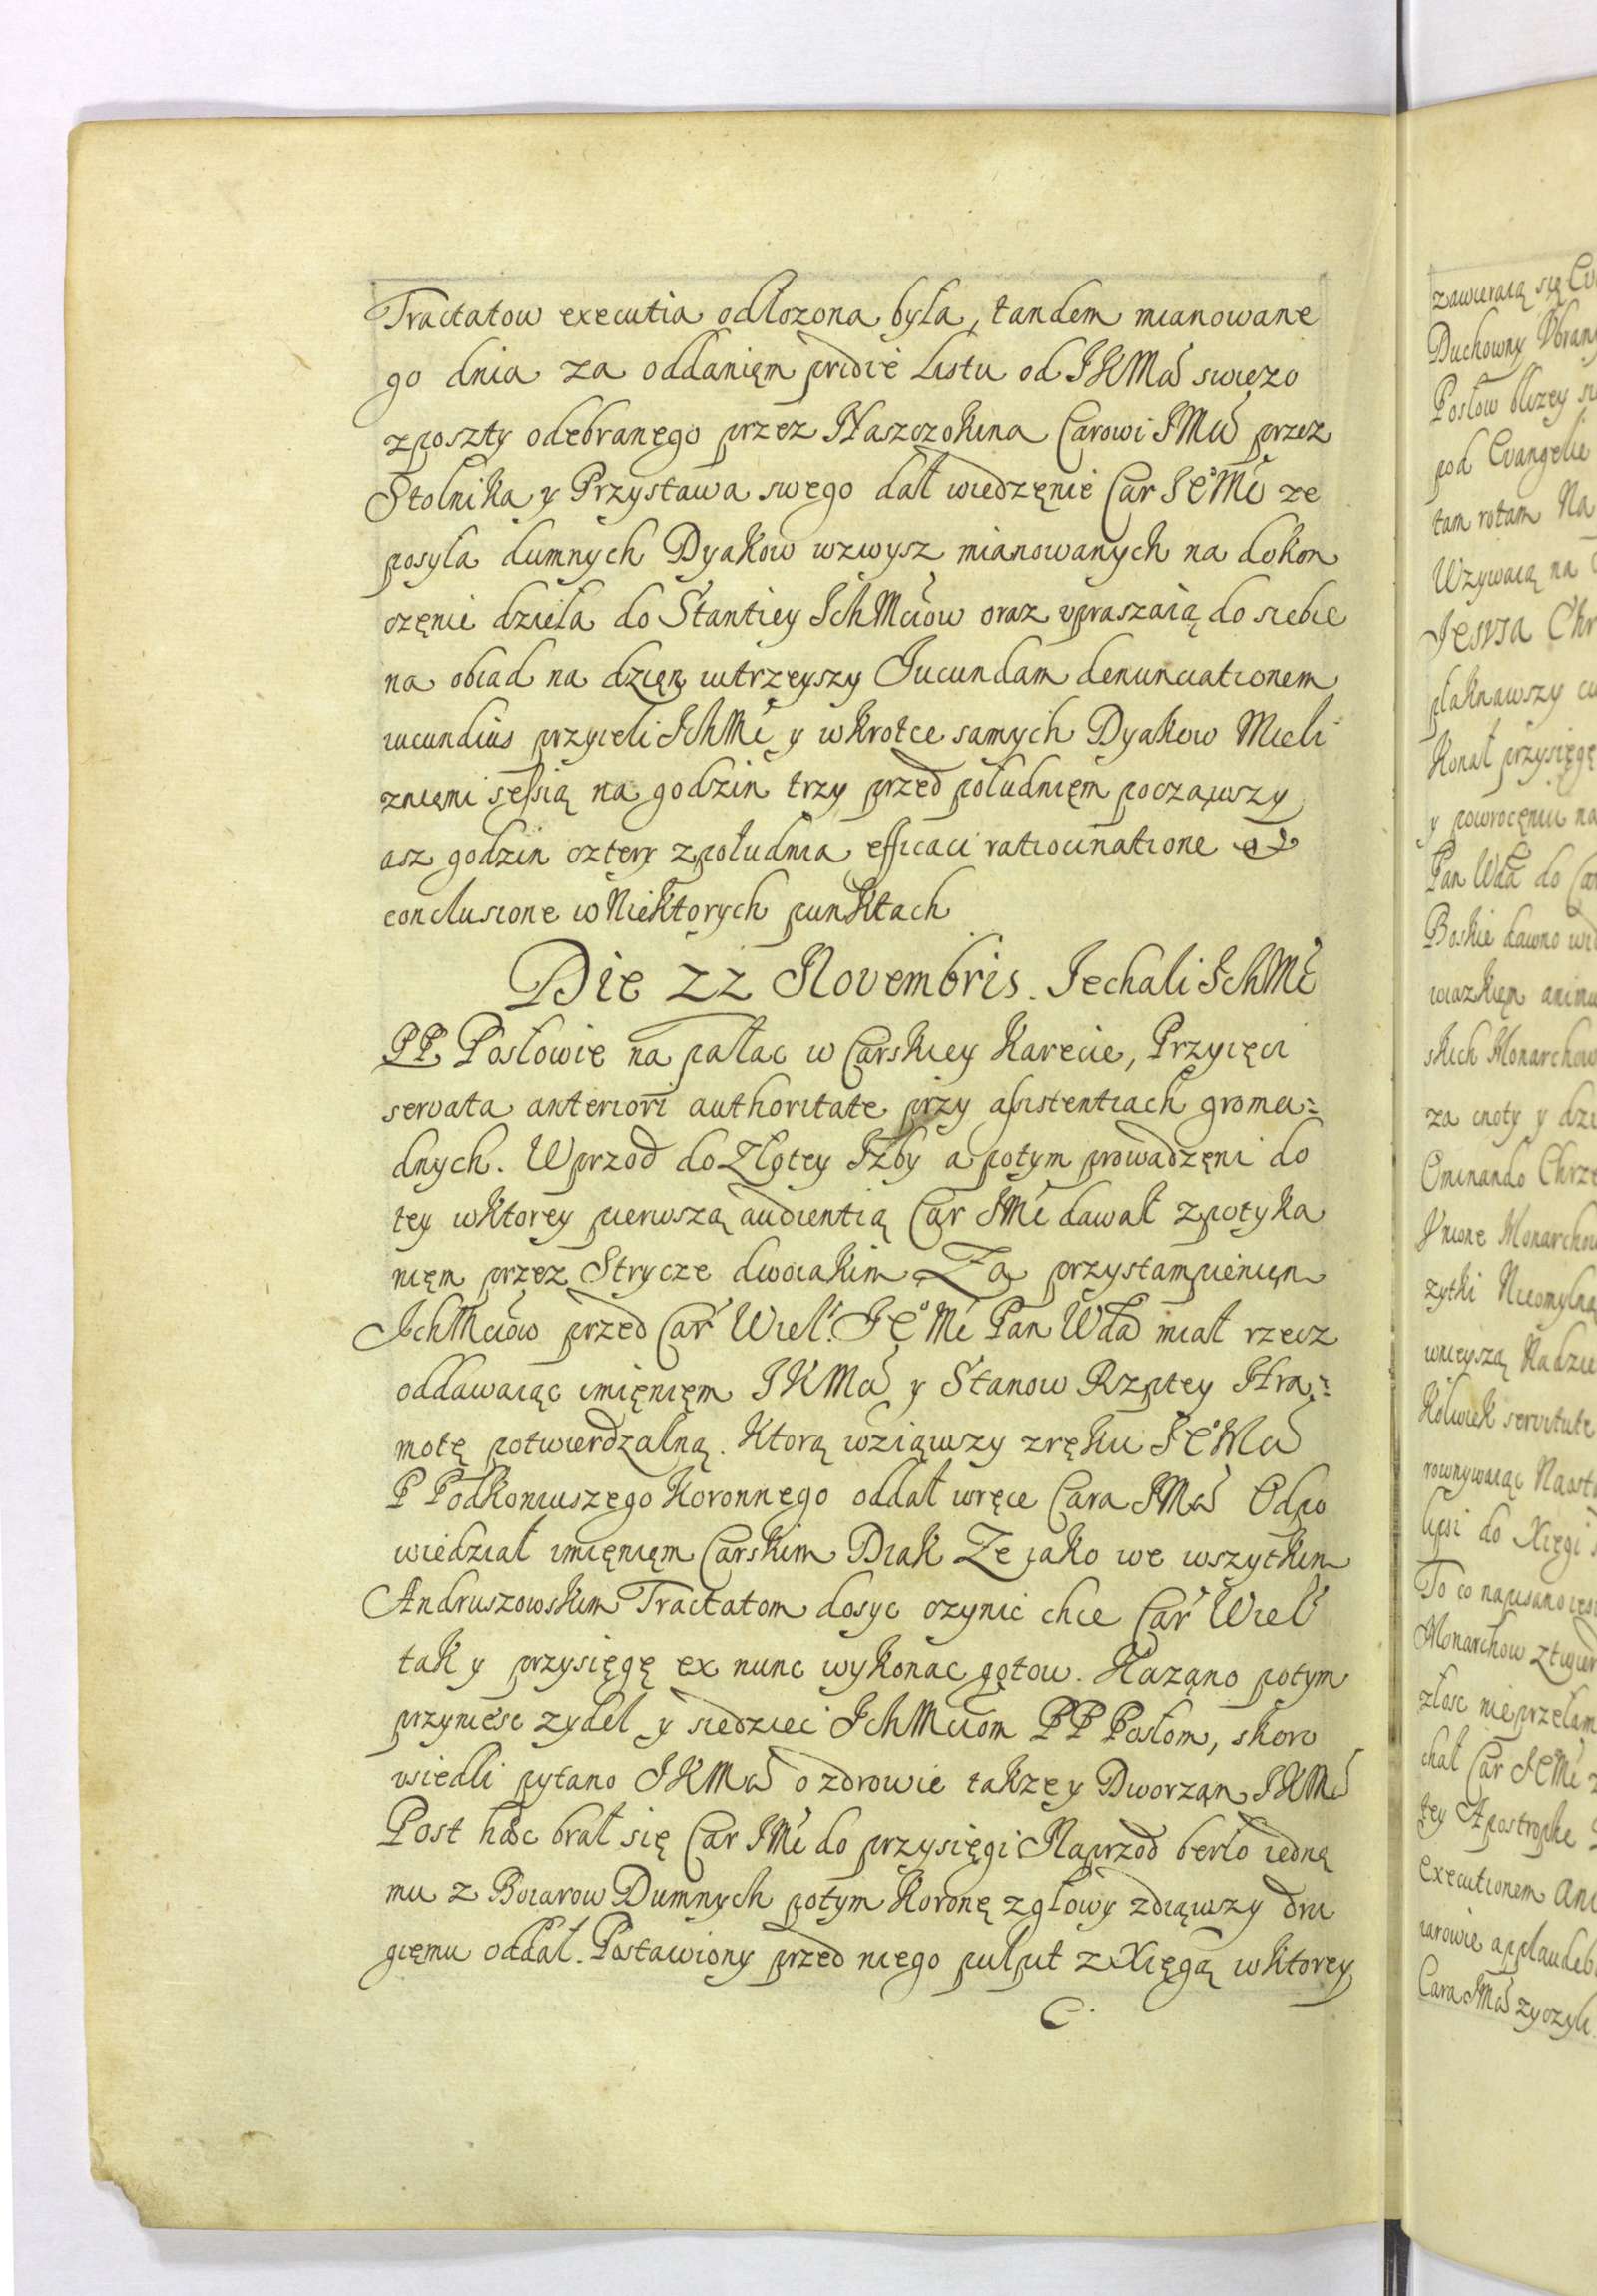 Tractatow executia odłozona była, tandem mianowane
go dnia za oddanięm pridie Listu od JKMci swiezo
zposzty odebranego przez Naszczokina Carowi JMci przez
Stolnika y Przystawa swego dał wiedzęnie Car JeoMć ze
posyla dumnych Dyakow wzwysz mianowanych na dokon
częnie dzieła do Stantiey IchMciow oraz upraszaią do siebie
na obiad na dzięn iutrzeyszy Iucundam denunciationem
iucundius przyieli IchMć y wkrotce samych Dyakow Mieli
zniemi sessią na godzin trzy przed południęm począwszy
asz godzin cztery zpołudnia efficaci ratiocinatione et
conclusione w Niektorych punktach
Die 22 Novembris. Iechali IchMć
PP. Posłowie na pałac w Carskiey Karecie, Przyięci
servata anteriori authoritate przy assistentiach groma=
dnych. Wprzod do Złotey Izby a potym prowadzęni do
tey wktorey pierwszą audientią Car JMć dawał zpotyka
nięm przez Strycze dwoiakim Za przystampienięn
IchMciow przed Car Wiel: JeoMć Pan Wda miał rzecz
oddawaiąc imięnięm JKMci y Stanow Rzptey Hra=
motę potwierdzalną. Ktorą wziąwszy zręku JeoMci
P Podkoniuszego Koronnego oddał wręce Cara JMci Odpo
wiedział imięnięm Carskim Diak Ze iako we wszytkim
Andruszowskim Tractatom dosyc czynic chce Car Wiel
tak y przysięgę ex nunc wykonac gotow. Kazano potym
przyniesc zydel y siedziec IchMciom PP Posłom, skoro
usiedli pytano JKMci o zdrowie takze y Dworzan JKMci
Post hac brał się Car JMć do przysięgi Naprzod berło iedną
mu z Boiarow Dumnych potym Koronę zgłowy zdiąwszy dru
gięmu oddał. Postawiony przed niego pulpit z Xięgą wktorey
C.
zawieraią się
Duchowny Ubran
Posłow blizey
pod Evangelie
tam rotam Na
Wzywaią na
Iesusa Chr
płaknawszy
Konał przysięgę
y powrocęniu na
Pan Wda do Car
Boskie dawno
wiazkięm anim
skich Monarchow
za cnoty y dzi
Ominando Chrze
Unione Monarchow
zytki Nieomylną
wnieyszą Nadzie
Kolwiek servitute
rownywaiąc Naost
lipsi do Xięgi
To co napisano iest
Monarchow ztwier
złosc nie przełam
chał Car JeoMć
tey Apostrophe
executionem ani
iarowie applaudeb
Cara JMci zyczyli